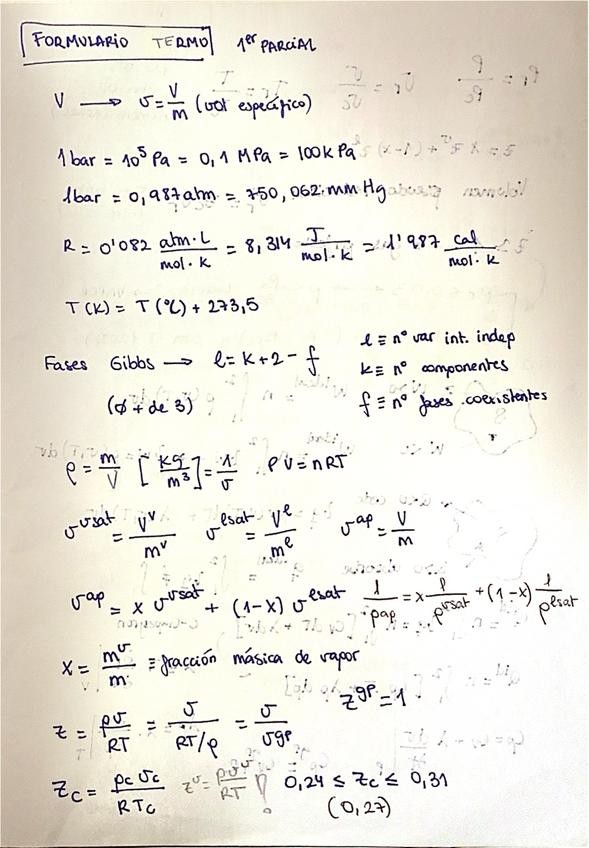 FORMULARIO TERMO 1er PARCIAL
V → v = V/m (vol específico)
1 bar = 10⁵ Pa = 0,1 MPa = 100 k Pa
1 bar = 0,987 atm = 750,062 mm Hg
R = 0'082 atm·L/mol·K = 8,314 J/mol·K = 1'987 cal/mol·K
T(K) = T(ºC) + 273,5
Fases Gibbs → l = K + 2 - f
(∅ + de 3)
l ≡ nº var int. indep
k ≡ nº componentes
f ≡ nº fases coexistentes
ρ = m/V [kg/m³] = 1/v PV = nRT
v^vsat = V^v/m^v v^lsat = V^l/m^l v^ap = V/m
v^ap = x v^vsat + (1-x) v^lsat 1/ρ^ap = x 1/ρ^vsat + (1-x) 1/ρ^lsat
x = m^v/m ≡ fracción másica de vapor
z = pv/RT = v/RT/p = v/v^gp z^gp = 1
Zc = pc vc/RTc z^v = pv^v/RT ! 0,24 ≤ Zc ≤ 0,31
(0,27)